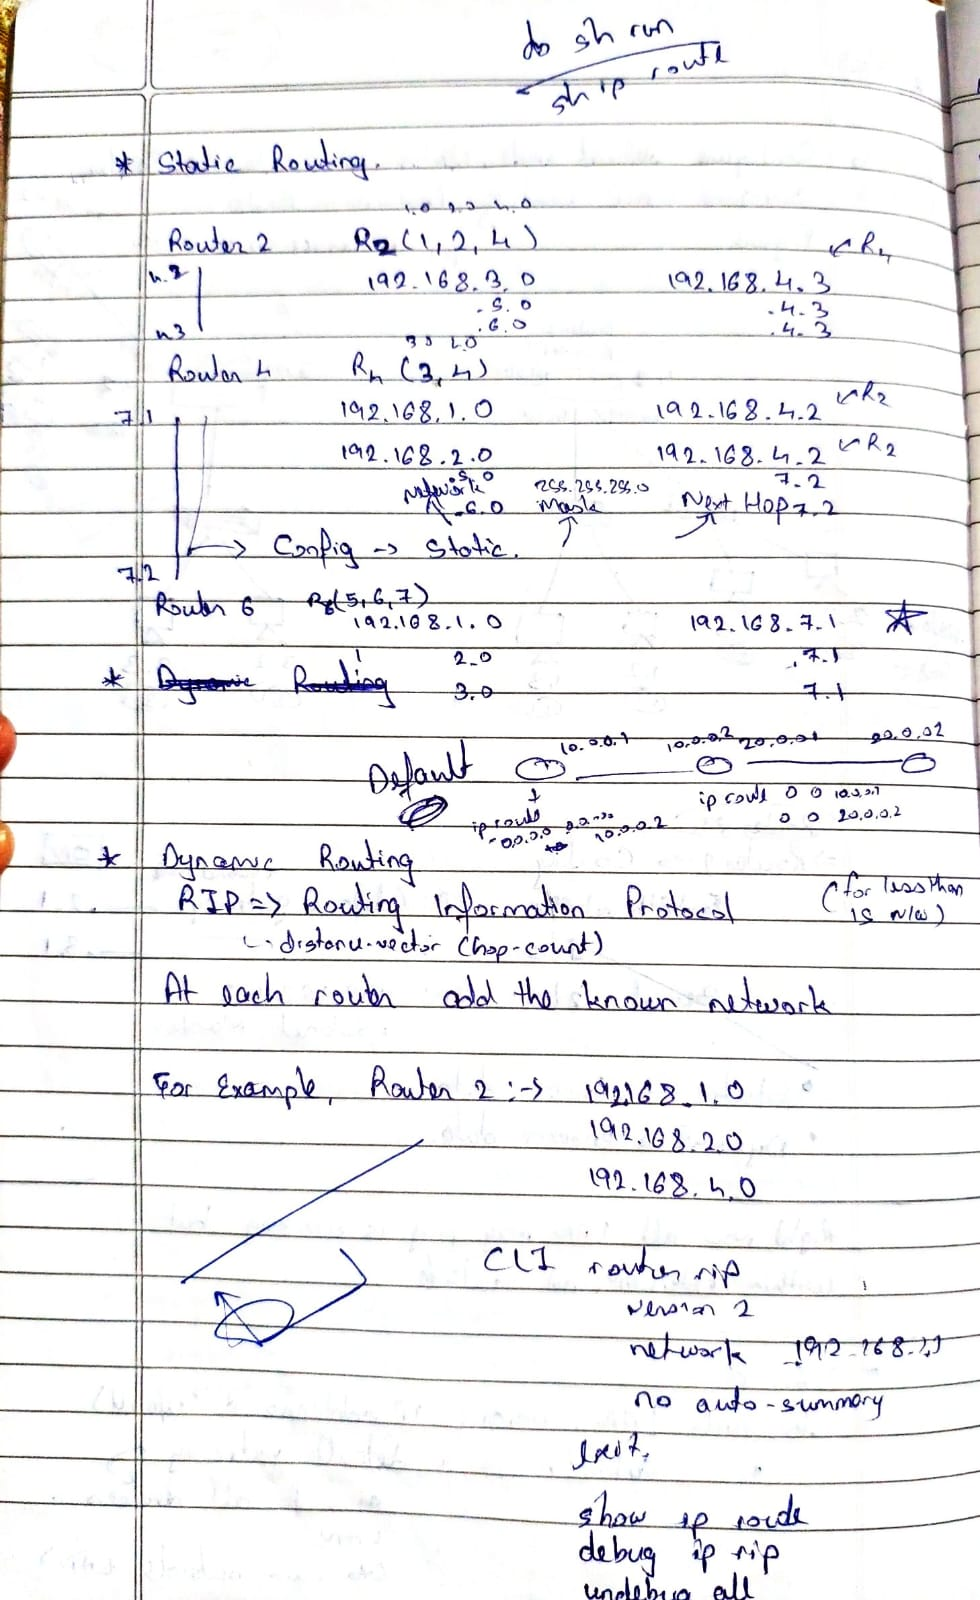 do sh run
sh ip route
* Static Routing.
1.0 2.0 4.0
Router 2 R2 (1, 2, 4) ↙ R4
4.2 192.168.3.0 192.168.4.3
.5.0 .4.3
4.3 .6.0 .4.3
3.0 4.0
Router 4 R4 (3, 4)
7.1 192.168.1.0 192.168.4.2 ↙ R2
192.168.2.0 192.168.4.2 ↙ R2
5.0 7.2
Network 255.255.255.0
6.0 Mask Next Hop 7.2
→ Config → Static.
7.2
Router 6 R6 (5, 6, 7)
192.168.1.0 192.168.7.1 ☆
2.0 .7.1
* Dynamic Routing 3.0 7.1
10.0.0.1 10.0.0.2 20.0.01 20.0.02
Default
ip route 0 0 10.0.0.1
ip route 0 0 20.0.0.2
0.0.0.0 10.0.0.2
* Dynamic Routing
RIP => Routing Information Protocol (for less than
15 N/W)
distance-vector (hop-count)
At each router add the known network
For Example, Router 2 :→ 192.168.1.0
192.168.2.0
192.168.4.0
CLI router rip
version 2
network 192.168.1.0
no auto-summary
exit.
show ip route
debug ip rip
undebug all